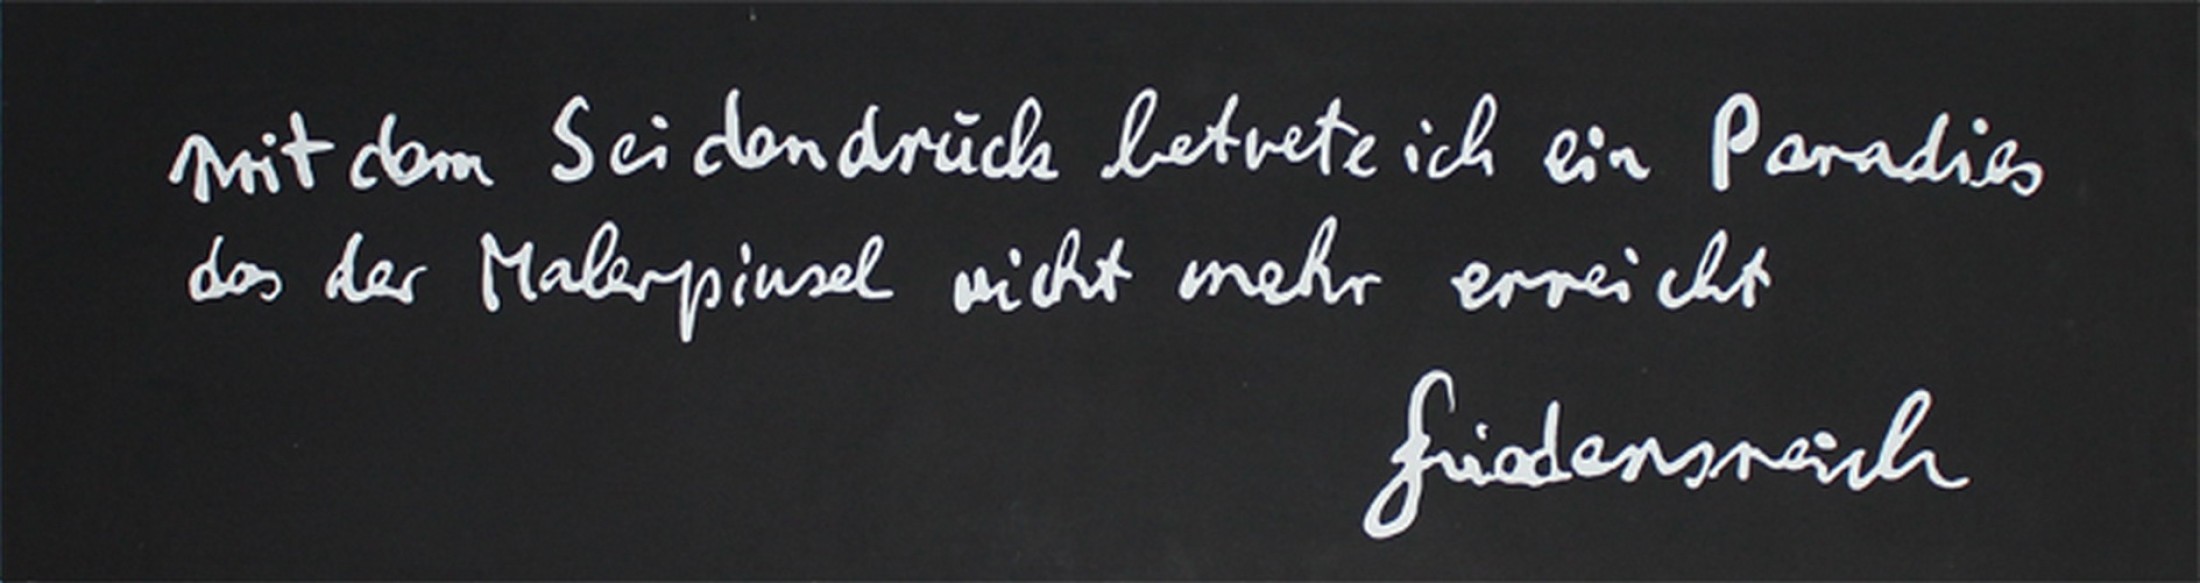 mit dem Seidendruck betrete ich ein Paradies
das der Malerpinsel nicht mehr erreicht
friedensreich